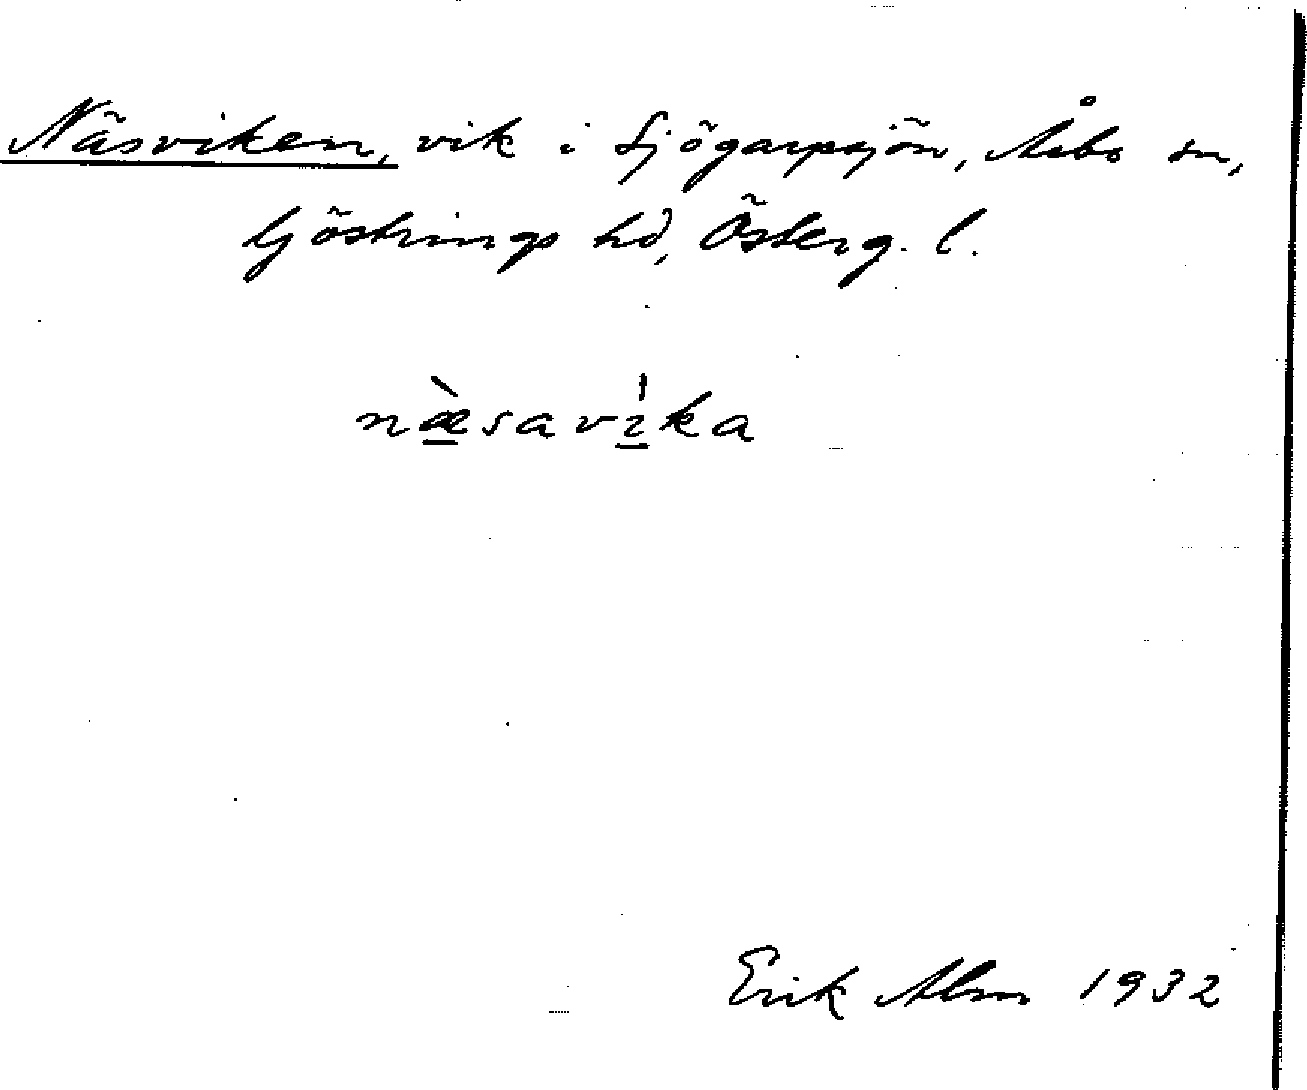 Näsviken, vik i Sjögarpsjön, Åsbo sn,
Göstrings hd, Österg. l.
næ̀savíka
Erik Alm 1932